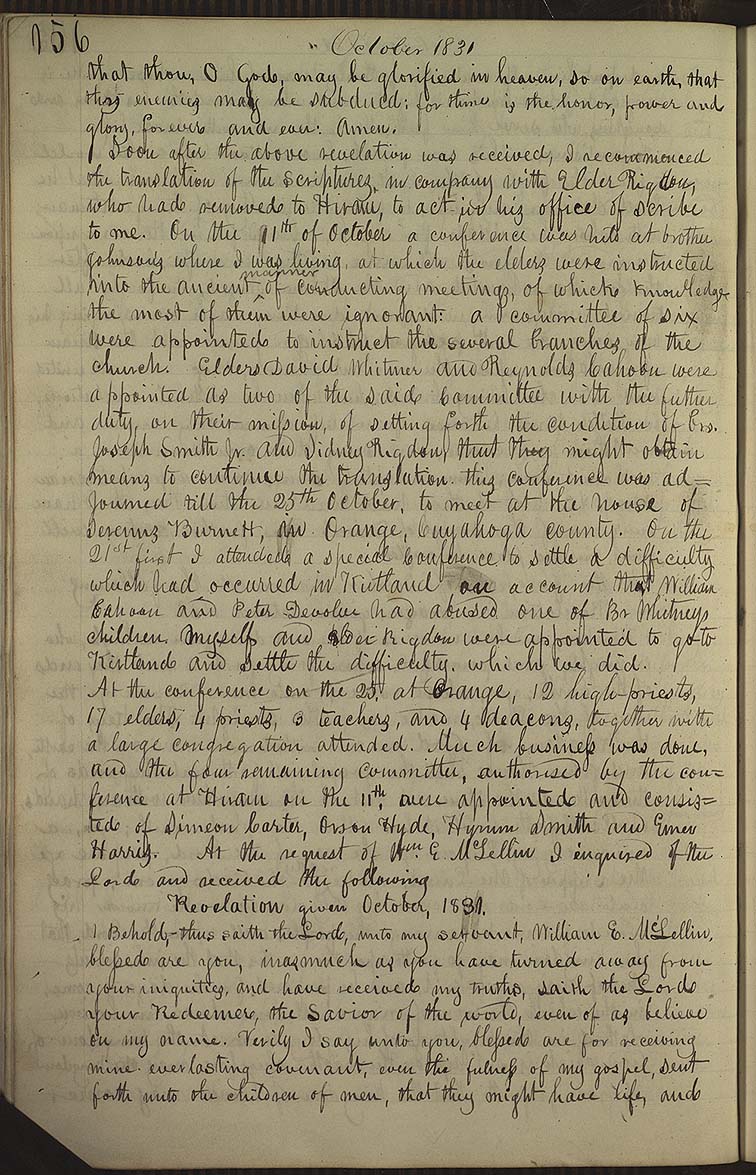 156
October 1831
that thou, O God, may be glorified in heaven, so on earth, that
thy enemies may be subdued; for thine is the honor, power and
glory, forever and ever: Amen.
Soon after the above revelation was received, I recommenced
the translation of the scriptures, in company with Elder Rigdon,
who had removed to Hiram, to act in his office of scribe
to me. On the 11th of October a conference was held at brother
Johnson's where I was living, at which the elders were instructed
manner
into the ancient ^ of conducting meetings, of which knowledge
the most of them were ignorant: a committee of six
were appointed to instruct the several branches of the
church. Elders David Whitmer and Reynolds Cahoon were
appointed as two of the said committee with the futher
duty, on their mission, of setting forth the condition of brs.
Joseph Smith Jr. and Sidney Rigdon, that they might obtain
means to continue the translation. this conference was ad=
journed till the 25th October, to meet at the house of
Serenus Burnett, in Orange, Cuyahoga county. On the
21st first I attended a special conference to settle a difficulty
which had occurred in Kirtland on account that William
Cahoon and Peter Devolue had abused one of Br Whitneys
children. Myself and Rigdon were appointed to go to
Kirtland and settle the difficulty, which we did.
At the conference on the 25, at Orange, 12 high-priests,
17 elders, 4 priests, 3 teachers, and 4 deacons, together with
a large congregation attended. Much business was done,
and the four remaining committee, authorised by the con=
ference at Hiram on the 11th, were appointed and consis=
ted of Simeon Carter, Orson Hyde, Hyrum Smith and Emer
Harris. At the request of Wm. E. McLellin I enquired of the
Lord and received the following
Revelation given October, 1831.
1 Behold,-thus saith the Lord, unto my servant, William E. McLellin,
blessed are you, inasmuch as you have turned away from
your iniquities, and have received my truths, saith the Lord
your Redeemer, the Savior of the world, even of as believe
on my name. Verily I say unto you, blessed are for receiving
mine everlasting covenant, even the fulness of my gospel, sent
forth unto the children of men, that they might have life, and